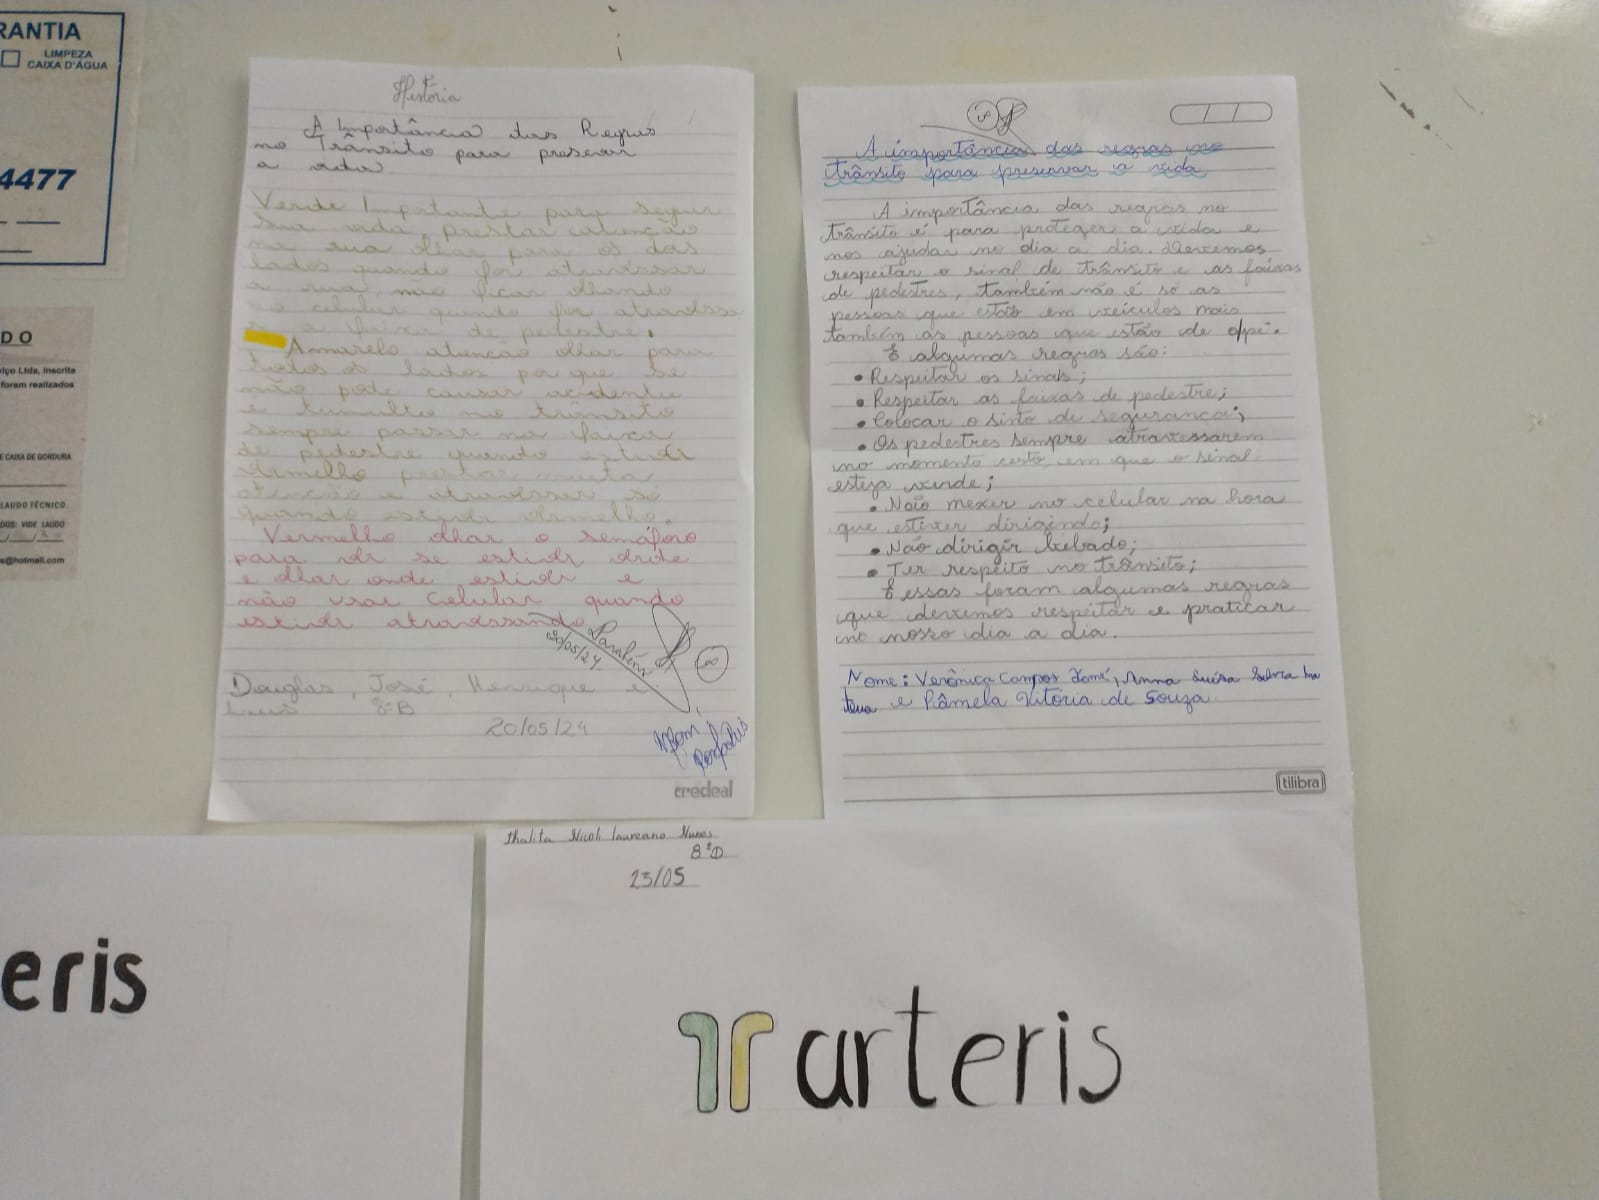 RANTIA
LIMPEZA
CAIXA D'ÁGUA
4477
DO
iço Ltda, inscrita
foram realizados
E CAIXA DE GORDURA
LAUDO TÉCNICO
DOS: VIDE LAUDO
s@hotmail.com
História
A Importância das Regras
no Trânsito para preservar
a vida
Verde Impotante para seguir
sua vida, prestar atenção
na rua olhar para os dos
lados quando for atravessar
a rua, não ficar olhando
no celular quando for atravessa
a faixa de pedestre.
Ammarelo atenção olhar para
todos os lados por que se
não pode causar acidente
e tumulto no trânsito
sempre passar na faixa
de pedestre quando estiver
vermelho prestar muita
atenção e atravessar só
quando estiver vermelho.
Vermelho olhar o semáforo
para ver se estiver verde
e olhar onde estiver e
não usar celular quando
estiver atravessando
20/05/24
Parabéns
Douglas, José, Henrique e
Luis 8°B
20/05/24
credeal
A importância das regras no
trânsito para preservar a vida
A importância das regras no
trânsito é para proteger a vida e
nos ajudar no dia a dia. Devemos
respeitar o sinal de trânsito e as faixas
de pedestres, também não é só as
pessoas que estão em veículos mais
também as pessoas que estão de a/pé.
E algumas regras são:
• Respeitar os sinais;
• Respeitar as faixas de pedestre;
• Colocar o sinto de segurança;
• Os pedestres sempre atravessarem
no momento certo em que o sinal
esteja verde;
• Não mexer no celular na hora
que estiver dirigindo;
• Não dirigir bebado;
• Ter respeito no trânsito;
E essas foram algumas regras
que devemos respeitar e praticar
no nosso dia a dia.
Nome: Verônica Campos Tomé, Anna Luisa
e Pâmela Vitória de Souza
tilibra
Thalita Nicoli Laureano Nunes
8°D
23/05
eris
arteris